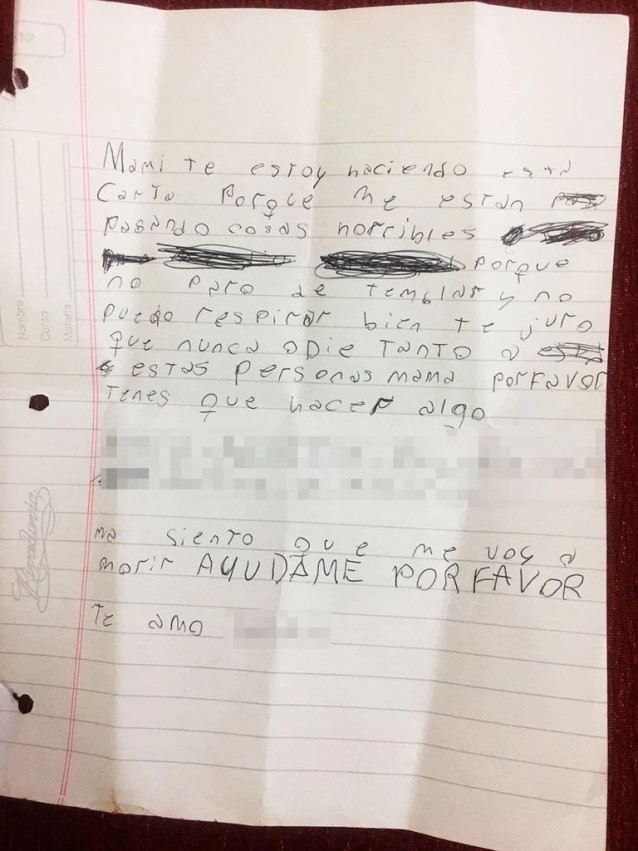 Nº
Mami te estoy haciendo esta
Carta Porque me estan
pasando cosas horribles
porque
no paro de temblar y no
puedo respirar bien te juro
que nunca odie TANTO a
estas personas mama porfavor
Tenes que hacer algo
ma siento que me voy a
morir AYUDAME POR FAVOR
Te amo
Nombre
Curso
Materia
Rivadavia